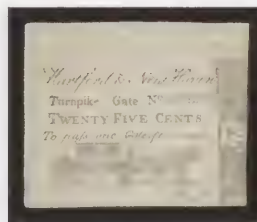 Hartford & New Haven
Turnpike Gate No
TWENTY FIVE CENTS
To pass one